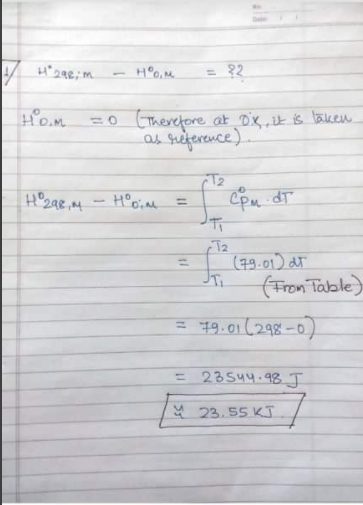 No.
Date: / /
1/ H°298,m – H°0,M = ??
H°0,M = 0 (Therefore at 0°K, it is taken
as reference).
H°298,M – H°0,M = ∫T1T2 C°pM · dT
= ∫T1T2 (79.01) dT
(From Table)
= 79.01 (298-0)
= 23544.98 J
≈ 23.55 KJ